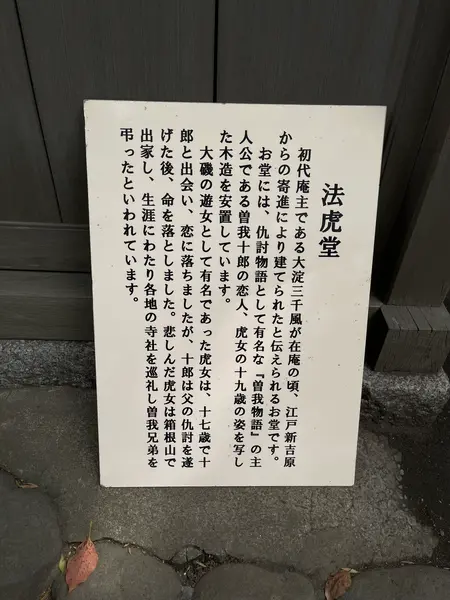 法虎堂
初代庵主である大淀三千風が在庵の頃、江戸新吉原
からの寄進により建てられたと伝えられるお堂です。
お堂には、仇討物語として有名な『曽我物語』の主
人公である曽我十郎の恋人、虎女の十九歳の姿を写し
た木造を安置しています。
大磯の遊女として有名であった虎女は、十七歳で十
郎と出会い、恋に落ちましたが、十郎は父の仇討を遂
げた後、命を落としました。悲しんだ虎女は箱根山で
出家し、生涯にわたり各地の寺社を巡礼し曽我兄弟を
弔ったといわれています。